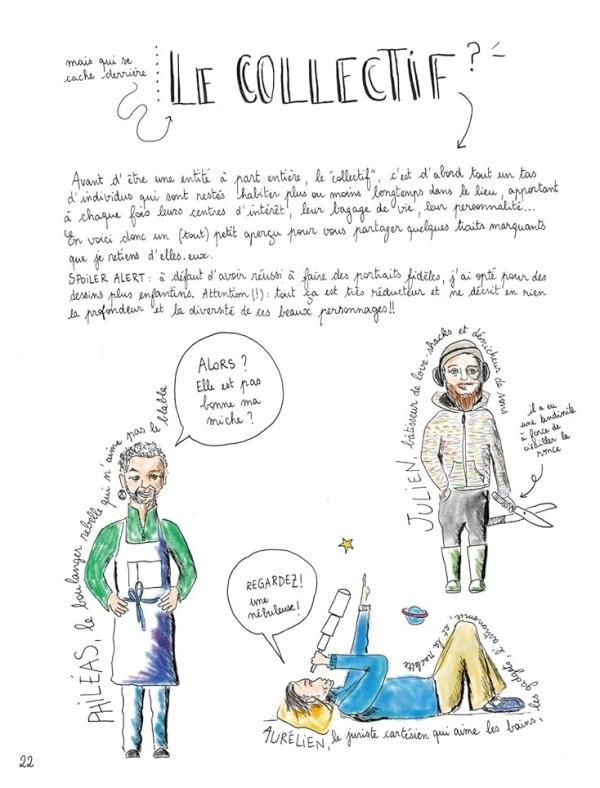 mais qui se
cache derrière
LE COLLECTIF ?
Avant d'être une entité à part entière, le "collectif", c'est d'abord tout un tas
d'individus qui sont restés habiter plus ou moins longtemps dans le lieu, apportant
à chaque fois leurs centres d'intérêt, leur bagage de vie, leur personnalité...
En voici donc un (tout) petit aperçu pour vous partager quelques traits marquants
que je retiens d'elles.eux.
SPOILER ALERT : à défaut d'avoir réussi à faire des portraits fidèles, j'ai opté pour des
dessins plus enfantins. Attention (!) : tout ça est très réducteur et ne décrit en rien
la profondeur et la diversité de ces beaux personnages !!
ALORS ?
Elle est pas
bonne ma
miche ?
PHILÉAS, le boulanger rebelle qui n'aime pas le blabla
JULIEN, bâtisseur de love-shacks et dénicheur de sons
il a eu
une tendinite
à force de
cisailler la
ronce
REGARDEZ !
une
nébuleuse !
AURÉLIEN, le juriste cartésien qui aime les bains, les gadgets, l'astronomie, et la
22